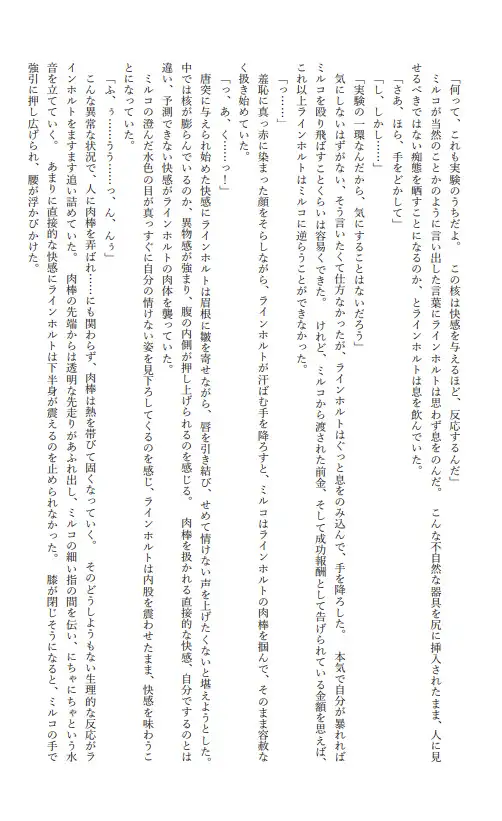 「何って、これも実験のうちだよ。　この核は快感を与えるほど、反応するんだ」
　ミルコが当然のことかのように言い出した言葉にラインホルトは思わず息をのんだ。　こんな不自然な器具を尻に挿入されたまま、人に見
せるべきではない痴態を晒すことになるのか、とラインホルトは息を飲んでいた。
「さあ、ほら、手をどかして」
「し、しかし……」
「実験の一環なんだから、気にすることはないだろう」
　気にしないはずがない、そう言いたくて仕方なかったが、ラインホルトはぐっと息をのみ込んで、手を降ろした。　本気で自分が暴れれば
ミルコを殴り飛ばすことくらいは容易くできた。　けれど、ミルコから渡された前金、そして成功報酬として告げられている金額を思えば、
これ以上ラインホルトはミルコに逆らうことができなかった。
「っ……」
　羞恥に真っ赤に染まった顔をそらしながら、ラインホルトが汗ばむ手を降ろすと、ミルコはラインホルトの肉棒を掴んで、そのまま容赦な
く扱き始めていた。
「っ、あ、く……っ！」
　唐突に与えられ始めた快感にラインホルトは眉根に皺を寄せながら、唇を引き結び、せめて情けない声を上げたくないと堪えようとした。
中では核が膨らんでいるのか、異物感が強まり、腹の内側が押し上げられるのを感じる。　肉棒を扱かれる直接的な快感、自分でするのとは
違い、予測できない快感がラインホルトの肉体を襲っていた。
　ミルコの澄んだ水色の目が真っすぐに自分の情けない姿を見下ろしてくるのを感じ、ラインホルトは内股を震わせたまま、快感を味わうこ
とになっていた。
「ふ、ぅ……うう……っ、ん、んぅ」
　こんな異常な状況で、人に肉棒を弄ばれ……にも関わらず、肉棒は熱を帯びて固くなっていく。　そのどうしようもない生理的な反応がラ
インホルトをますます追い詰めていた。　肉棒の先端からは透明な先走りがあふれ出し、ミルコの細い指の間を伝い、にちゃにちゃという水
音を立てていく。　あまりに直接的な快感にラインホルトは下半身が震えるのを止められなかった。　膝が閉じそうになると、ミルコの手で
強引に押し広げられ、腰が浮かびかけた。